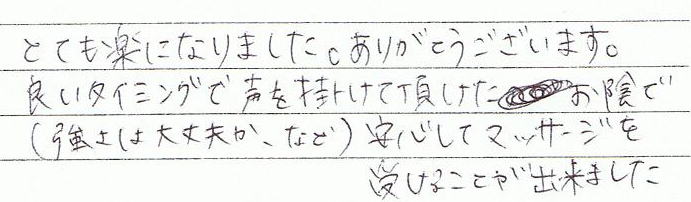 とても楽になりました。ありがとうございます。
良いタイミングで声を掛けて頂けたお陰で
(強さは大丈夫か、など)安心してマッサージを
受けることが出来ました